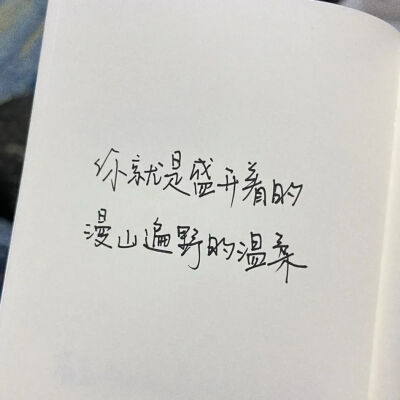 你就是盛开着的
漫山遍野的温柔